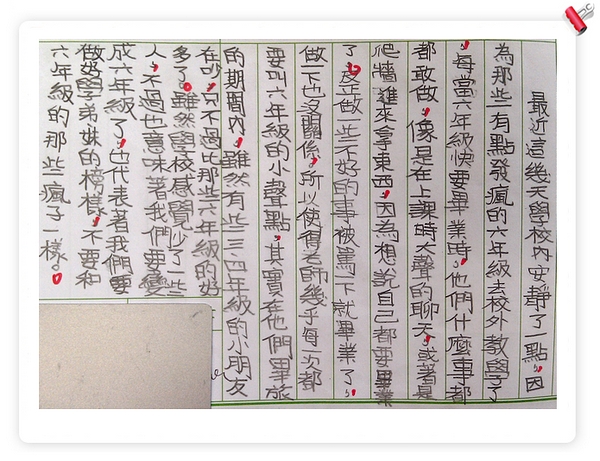 最近這幾天學校內安靜了一點，因
為那些有點發瘋的六年級去校外教學了
，每當六年級快要畢業時，他們什麼事都
都敢做，像是在上課時大聲的聊天，或者是
爬牆進來拿東西，因為想說自己都要畢業
了，反正做一些不好的事被罵一下就畢業了，
做一下也沒關係，所以使得老師幾乎每一次都
要叫六年級的小聲點，其實在他們畢旅
的期間內，雖然有些三、四年級的小朋友
在吵，只不過比那些六年級的好
多了。雖然學校感覺少了一些
人，不過也意味著我們要變
成六年級了，也代表著我們要
做好學弟妹的榜樣，不要和
六年級的那些瘋子一樣。